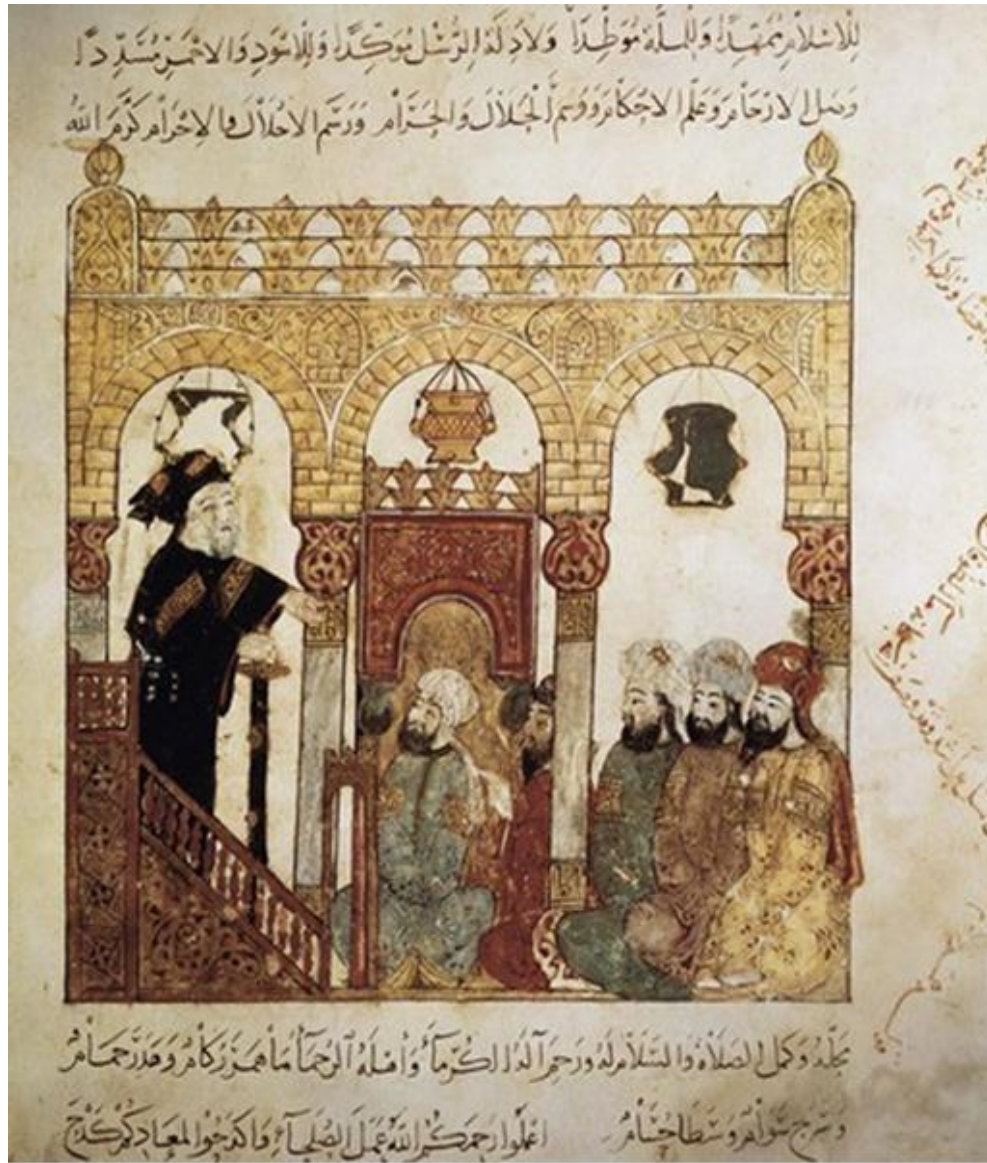 للاسلام ممهدا وللملة موطدا ولادلة الرسل موكدا وللاسود والاحمر مسددا
وصل الارحام وعلم الاحكام ووسم الحلال والحرام ورسم الاحلال والاحرام كرم الله
محله وكمل الصلاة والسلام له ورحم آله الكرماء واهله الرحماء ما همر ركام وهدر حمام
وسرح سوام وسطا حسام اعملوا رحمكم الله عمل الصلحاء واكدحوا لمعادكم كدح